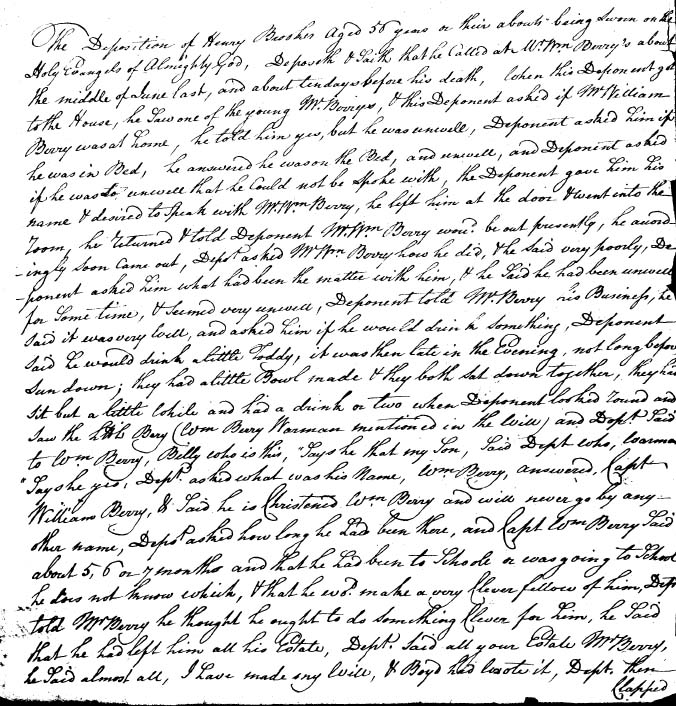 The Deposition of Henry Brosher Aged 56 years or their abouts being Sworn on the
Holy Evangels of Almighty God, Deposeth & Saith that he Called at Mr. Wm Berry's about
the middle of June last, and about tendays before his death, When this Deponent got
to the House, he Saw one of the young Mr. Berrys, & this Deponent asked if Mr William
Berry was at home, he told him yes, but he was unwell, Deponent asked him if
he was in Bed, he answered he was on the Bed, and unwell, and Deponent asked
if he was So unwell that he Could not be Spoke with, the Deponent gave him his
name & desired to Speak with Mr. Wm Berry, he left him at the door & went into the
Room, he returned & told Deponent Mr. Wm Berry woud. be out presently, he accord
-ingly Soon Came out, Dept. asked Mr Wm Berry how he did, & he Said very poorly, De
-ponent asked him what had been the matter with him, & he Said he had been unwell
for Some time, & Seemed very unwell, Deponent told Mr Berry his Business, he
Said it was very Well, and asked him if he would drink Something, Deponent
Said he would drink a little Toddy, it was then late in the Evening, not long before
Sun down; they had a little Bowl made & they both Sat down together, they had
Sit but a little while and had a drink or two when Deponent looked round and
Saw the little Boy (Wm Berry Warman mentioned in the Will) and Dept. Said
to Wm Berry, Billy who is this, Says he that my Son, Said Dept who, Warman
"Says he yes, Dept. asked what was his Name, Wm Berry, answered, Capt
William Berry, & Said he is Christened Wm Berry and will never go by any-
other name, Dept. asked how long he had been there, and Capt Wm Berry Said
about 5, 6 or 7 months and that he had been to Schoole or was going to School
he does not know which, & that he wod. make a very Clever fellow of him, Dept
told Mr Berry he thought he ought to do something Clever for him, he Said
that he had left him all his Estate, Dept. Said all your Estate Mr Berry,
he Said almost all, I have made my Will, & Boyd had wrote it, Dept. then
Clapped